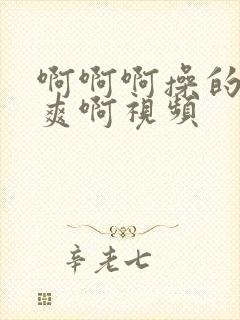 啊啊啊操的
爽啊視頻
辛老七